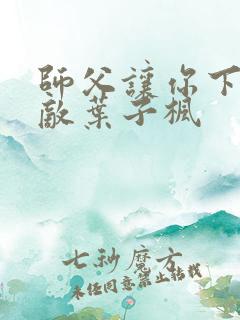 師父讓你下
敵葉子楓
七秒魔方
未任同意禁止转载